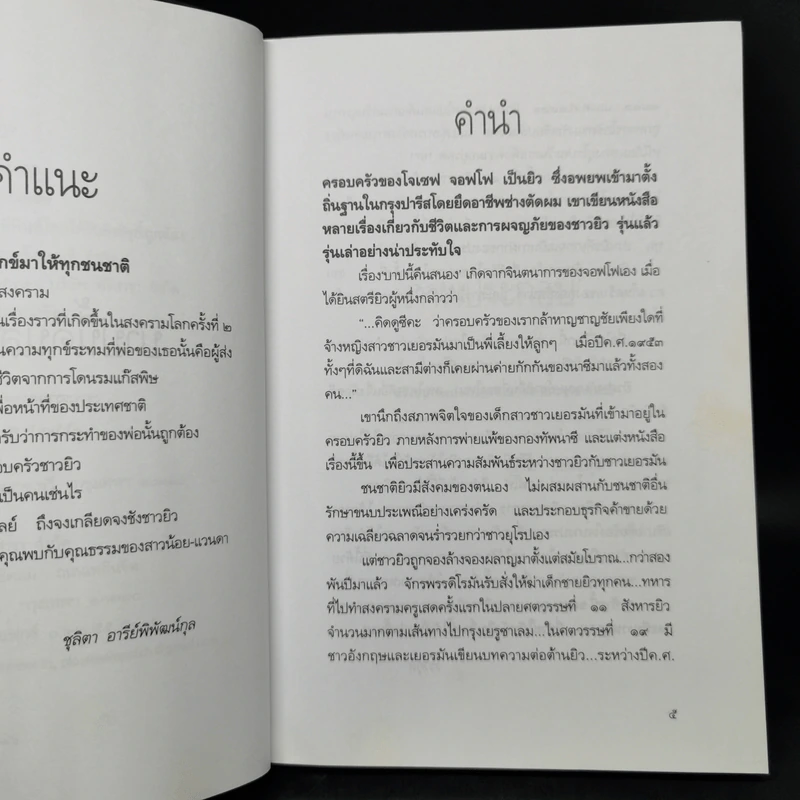 คำแนะ
กข์มาให้ทุกชนชาติ
สงคราม
นเรื่องราวที่เกิดขึ้นในสงครามโลกครั้งที่ ๒
นความทุกข์ระทมที่พ่อของเธอนั้นคือผู้ส่ง
ชีวิตจากการโดนรมแก๊สพิษ
พื่อหน้าที่ของประเทศชาติ
ารับว่าการกระทำของพ่อนั้นถูกต้อง
อบครัวชาวยิว
เป็นคนเช่นไร
ลย์ ถึงจงเกลียดจงชังชาวยิว
คุณพบกับคุณธรรมของสาวน้อย-แวนดา
ชุลิตา อารีย์พิพัฒน์กุล
คำนำ
ครอบครัวของโจเซฟ จอฟโฟ เป็นยิว ซึ่งอพยพเข้ามาตั้ง
ถิ่นฐานในกรุงปารีสโดยยึดอาชีพช่างตัดผม เขาเขียนหนังสือ
หลายเรื่องเกี่ยวกับชีวิตและการผจญภัยของชาวยิว รุ่นแล้ว
รุ่นเล่าอย่างน่าประทับใจ
เรื่อง'บาปนี้คืนสนอง' เกิดจากจินตนาการของจอฟโฟเอง เมื่อ
ได้ยินสตรียิวผู้หนึ่งกล่าวว่า
"...คิดดูซีคะ ว่าครอบครัวของเรากล้าหาญชาญชัยเพียงใดที่
จ้างหญิงสาวชาวเยอรมันมาเป็นพี่เลี้ยงให้ลูกๆ เมื่อปีค.ศ.๑๙๕๓
ทั้งๆที่ดิฉันและสามีต่างก็เคยผ่านค่ายกักกันของนาซีมาแล้วทั้งสอง
คน..."
เขานึกถึงสภาพจิตใจของเด็กสาวชาวเยอรมันที่เข้ามาอยู่ใน
ครอบครัวยิว ภายหลังการพ่ายแพ้ของกองทัพนาซี และแต่งหนังสือ
เรื่องนี้ขึ้น เพื่อประสานความสัมพันธ์ระหว่างชาวยิวกับชาวเยอรมัน
ชนชาติยิวมีสังคมของตนเอง ไม่ผสมผสานกับชนชาติอื่น
รักษาขนบประเพณีอย่างเคร่งครัด และประกอบธุรกิจค้าขายด้วย
ความเฉลียวฉลาดจนร่ำรวยกว่าชาวยุโรปเอง
แต่ชาวยิวถูกจองล้างจองผลาญมาตั้งแต่สมัยโบราณ...กว่าสอง
พันปีมาแล้ว จักรพรรดิโรมันรับสั่งให้ฆ่าเด็กชายยิวทุกคน...ทหาร
ที่ไปทำสงครามครูเสดครั้งแรกในปลายศตวรรษที่ ๑๑ สังหารยิว
จำนวนมากตามเส้นทางไปกรุงเยรูซาเลม...ในศตวรรษที่ ๑๙ มี
ชาวอังกฤษและเยอรมันเขียนบทความต่อต้านยิว...ระหว่างปีค.ศ.
๕